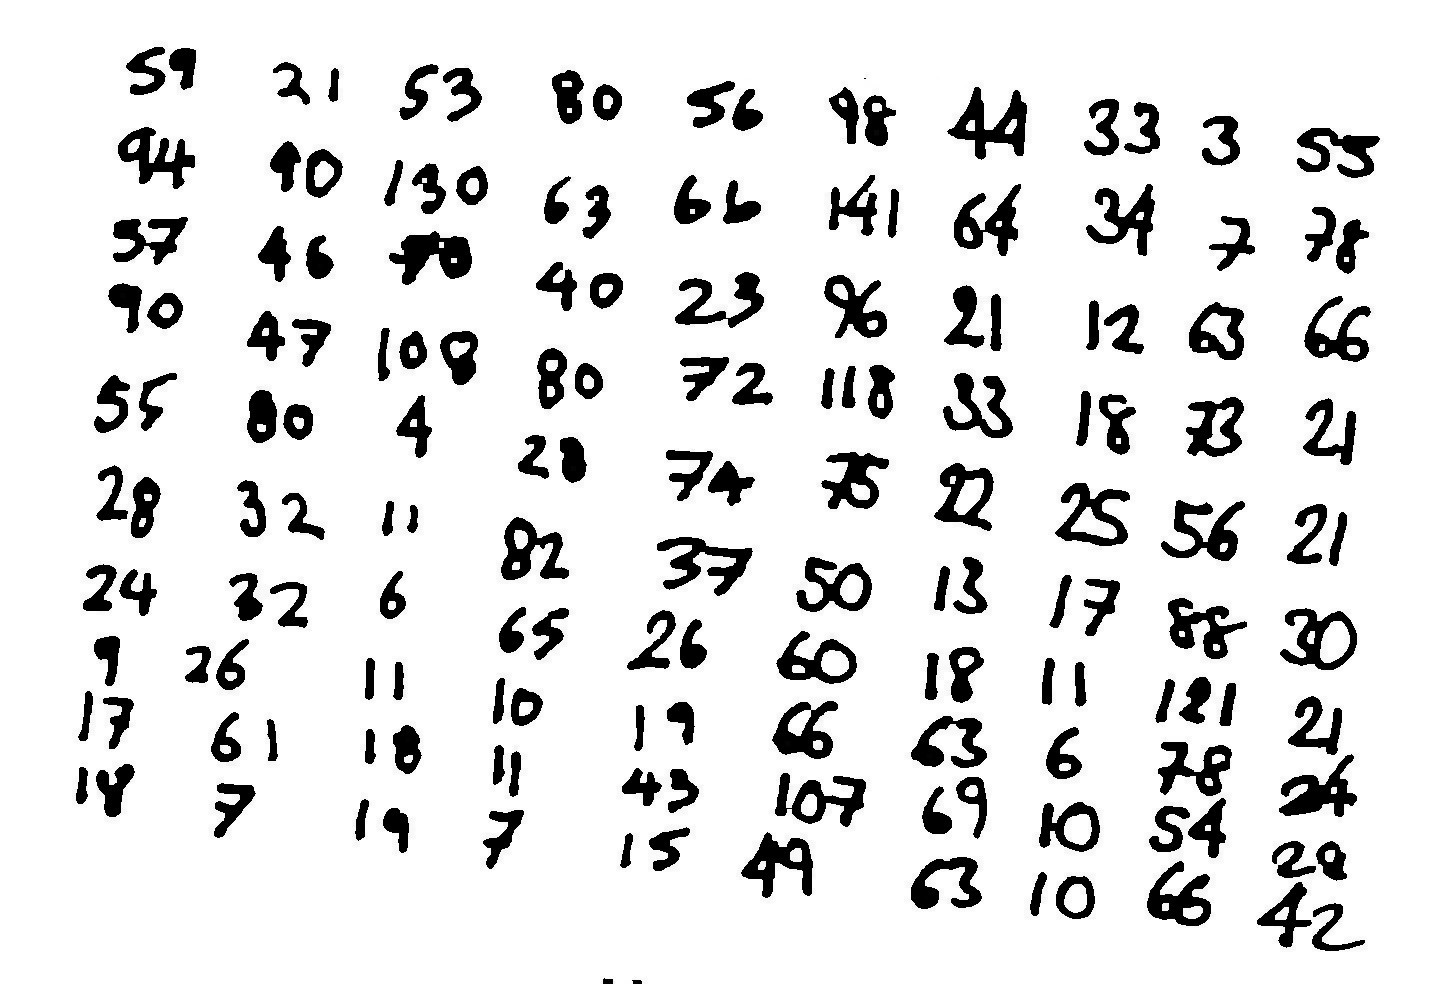 59 21 53 80 56 98 44 33 3 55
94 90 130 63 66 141 64 34 7 78
57 46 70 40 23 96 21 12 63 66
90 47 108 80 72 118 33 18 73 21
55 80 4 28 74 75 22 25 56 21
28 32 11 82 37 50 13 17 88 30
24 32 6 65 26 60 18 11 121 21
9 26 11 10 19 66 63 6 78 24
17 61 18 11 43 107 69 10 54 29
18 7 19 7 15 49 63 10 66 42